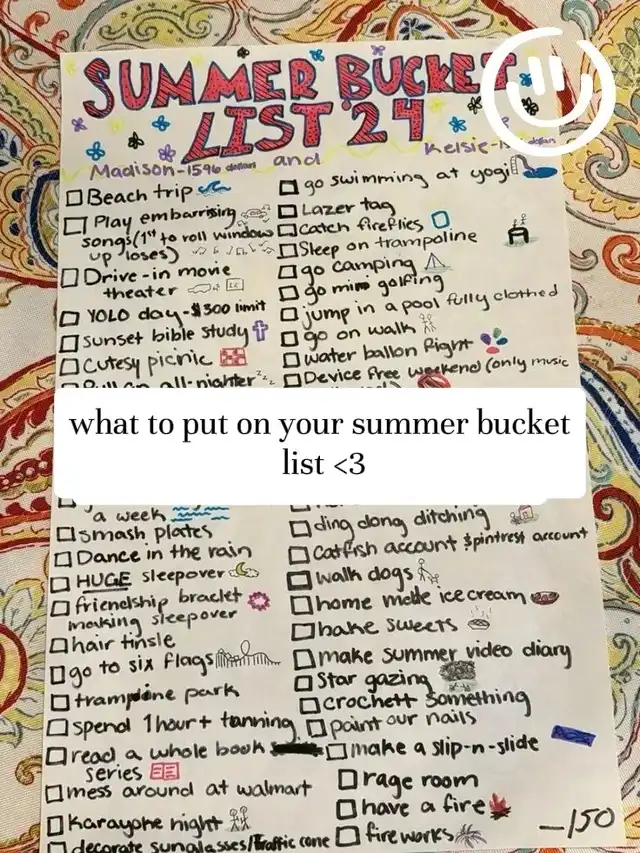 SUMMER BUCKET
LIST '24
Madison-1596 dollars and Kelsie-
Beach trip
Play embarrising
songs(1st to roll window
up loses)
Drive-in movie
theater
YOLO day-$300 limit
sunset bible study
cutesy picnic
all-nighter zzz
go swimming at yogi
Lazer tag
catch fireflies
Sleep on trampoline
go camping
go mini golfing
jump in a pool fully clothed
go on walk
water ballon fight
Device free weekend (only music
what to put on your summer bucket
list <3
a week
smash plates
Dance in the rain
HUGE sleepover
friendship braclet
making sleepover
hair tinsle
go to six flags
trampoine park
spend 1hour+ tanning
read a whole book
series
mess around at walmart
karayoke night
decorate sunglasses/traffic cone
ding dong ditching
catfish account &pintrest account
walk dogs
home made ice cream
bake sweets
make summer video diary
Star gazing
crochett something
paint our nails
make a slip-n-slide
rage room
have a fire
fireworks
-150